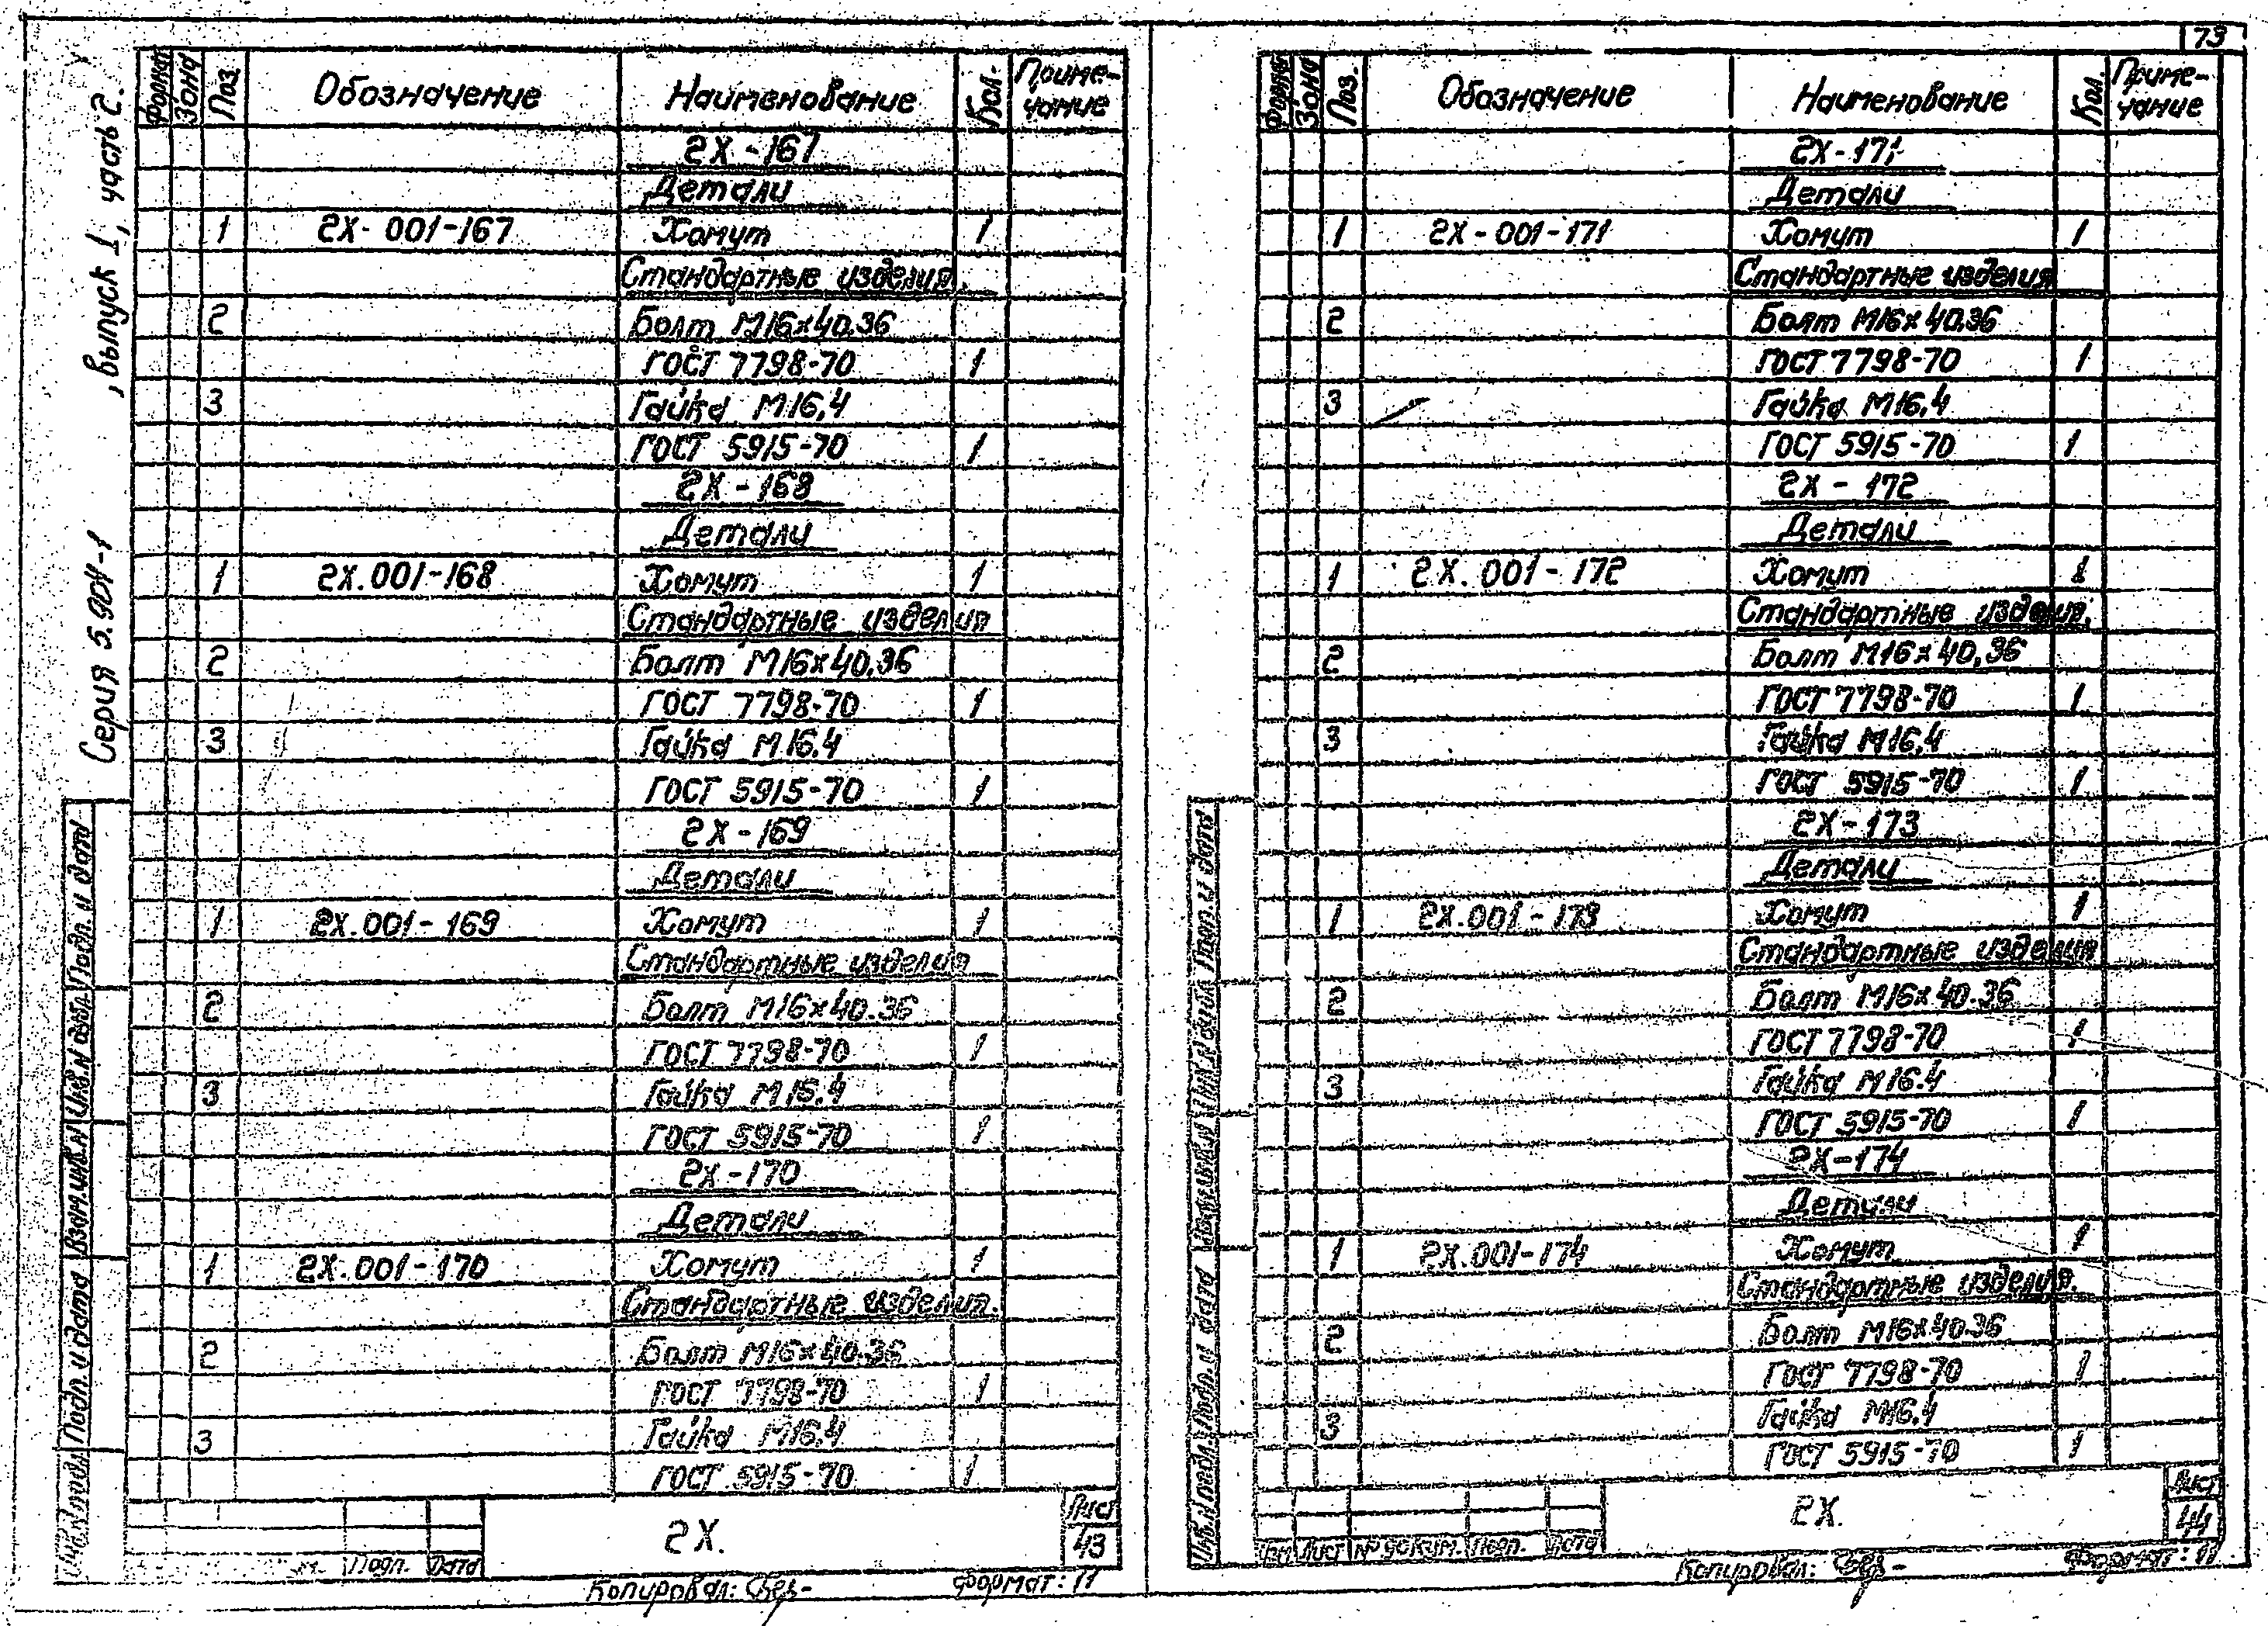 73
Серия 5.904-1 , выпуск 1, часть 2.
Формат Зона Поз. Обозначение Наименование Кол. Примечание
2Х-167
Детали
1 2Х-001-167 Хомут 1
Стандартные изделия.
2 Болт М16×40.36
ГОСТ 7798-70 1
3 Гайка М16,4
ГОСТ 5915-70 1
2Х-168
Детали
1 2Х.001-168 Хомут 1
Стандартные изделия
2 Болт М16×40.36
ГОСТ 7798-70 1
3 Гайка М16.4
ГОСТ 5915-70 1
2Х-169
Детали
1 2Х.001-169 Хомут 1
Стандартные изделия
2 Болт М16×40.36
ГОСТ 7798-70 1
3 Гайка М16.4
ГОСТ 5915-70 1
2Х-170
Детали
1 2Х.001-170 Хомут 1
Стандартные изделия.
2 Болт М16×40.36
ГОСТ 7798-70 1
3 Гайка М16,4
ГОСТ 5915-70 1
Подп. и дат
Инв.N дубл.
Взам.инв.N
Подп. и дата
Инв.N подл.
Подп. Дата
2Х.
Лист
43
Копировал:
Формат: 11
Формат Зона Поз. Обозначение Наименование Кол. Примечание
2Х-171
Детали
1 2Х-001-171 Хомут 1
Стандартные изделия
2 Болт М16×40.36
ГОСТ 7798-70 1
3 Гайка М16,4
ГОСТ 5915-70 1
2Х-172
Детали
1 2Х.001-172 Хомут 1
Стандартные изделия.
2 Болт М16×40,36
ГОСТ 7798-70 1
3 Гайка М16,4
ГОСТ 5915-70 1
2Х-173
Детали
1 2Х.001-173 Хомут 1
Стандартные изделия
2 Болт М16×40.36
ГОСТ 7798-70 1
3 Гайка М16.4
ГОСТ 5915-70 1
2Х-174
Детали
1 2Х.001-174 Хомут 1
Стандартные изделия.
2 Болт М16×40.36
ГОСТ 7798-70 1
3 Гайка М16,4
ГОСТ 5915-70 1
Подп. и дата
Взам.инв.N
Подп. и дата
Инв.N подл.
Изм Лист № докум. Подп. Дата
2Х.
Лист
44
Копировал:
Формат: 11